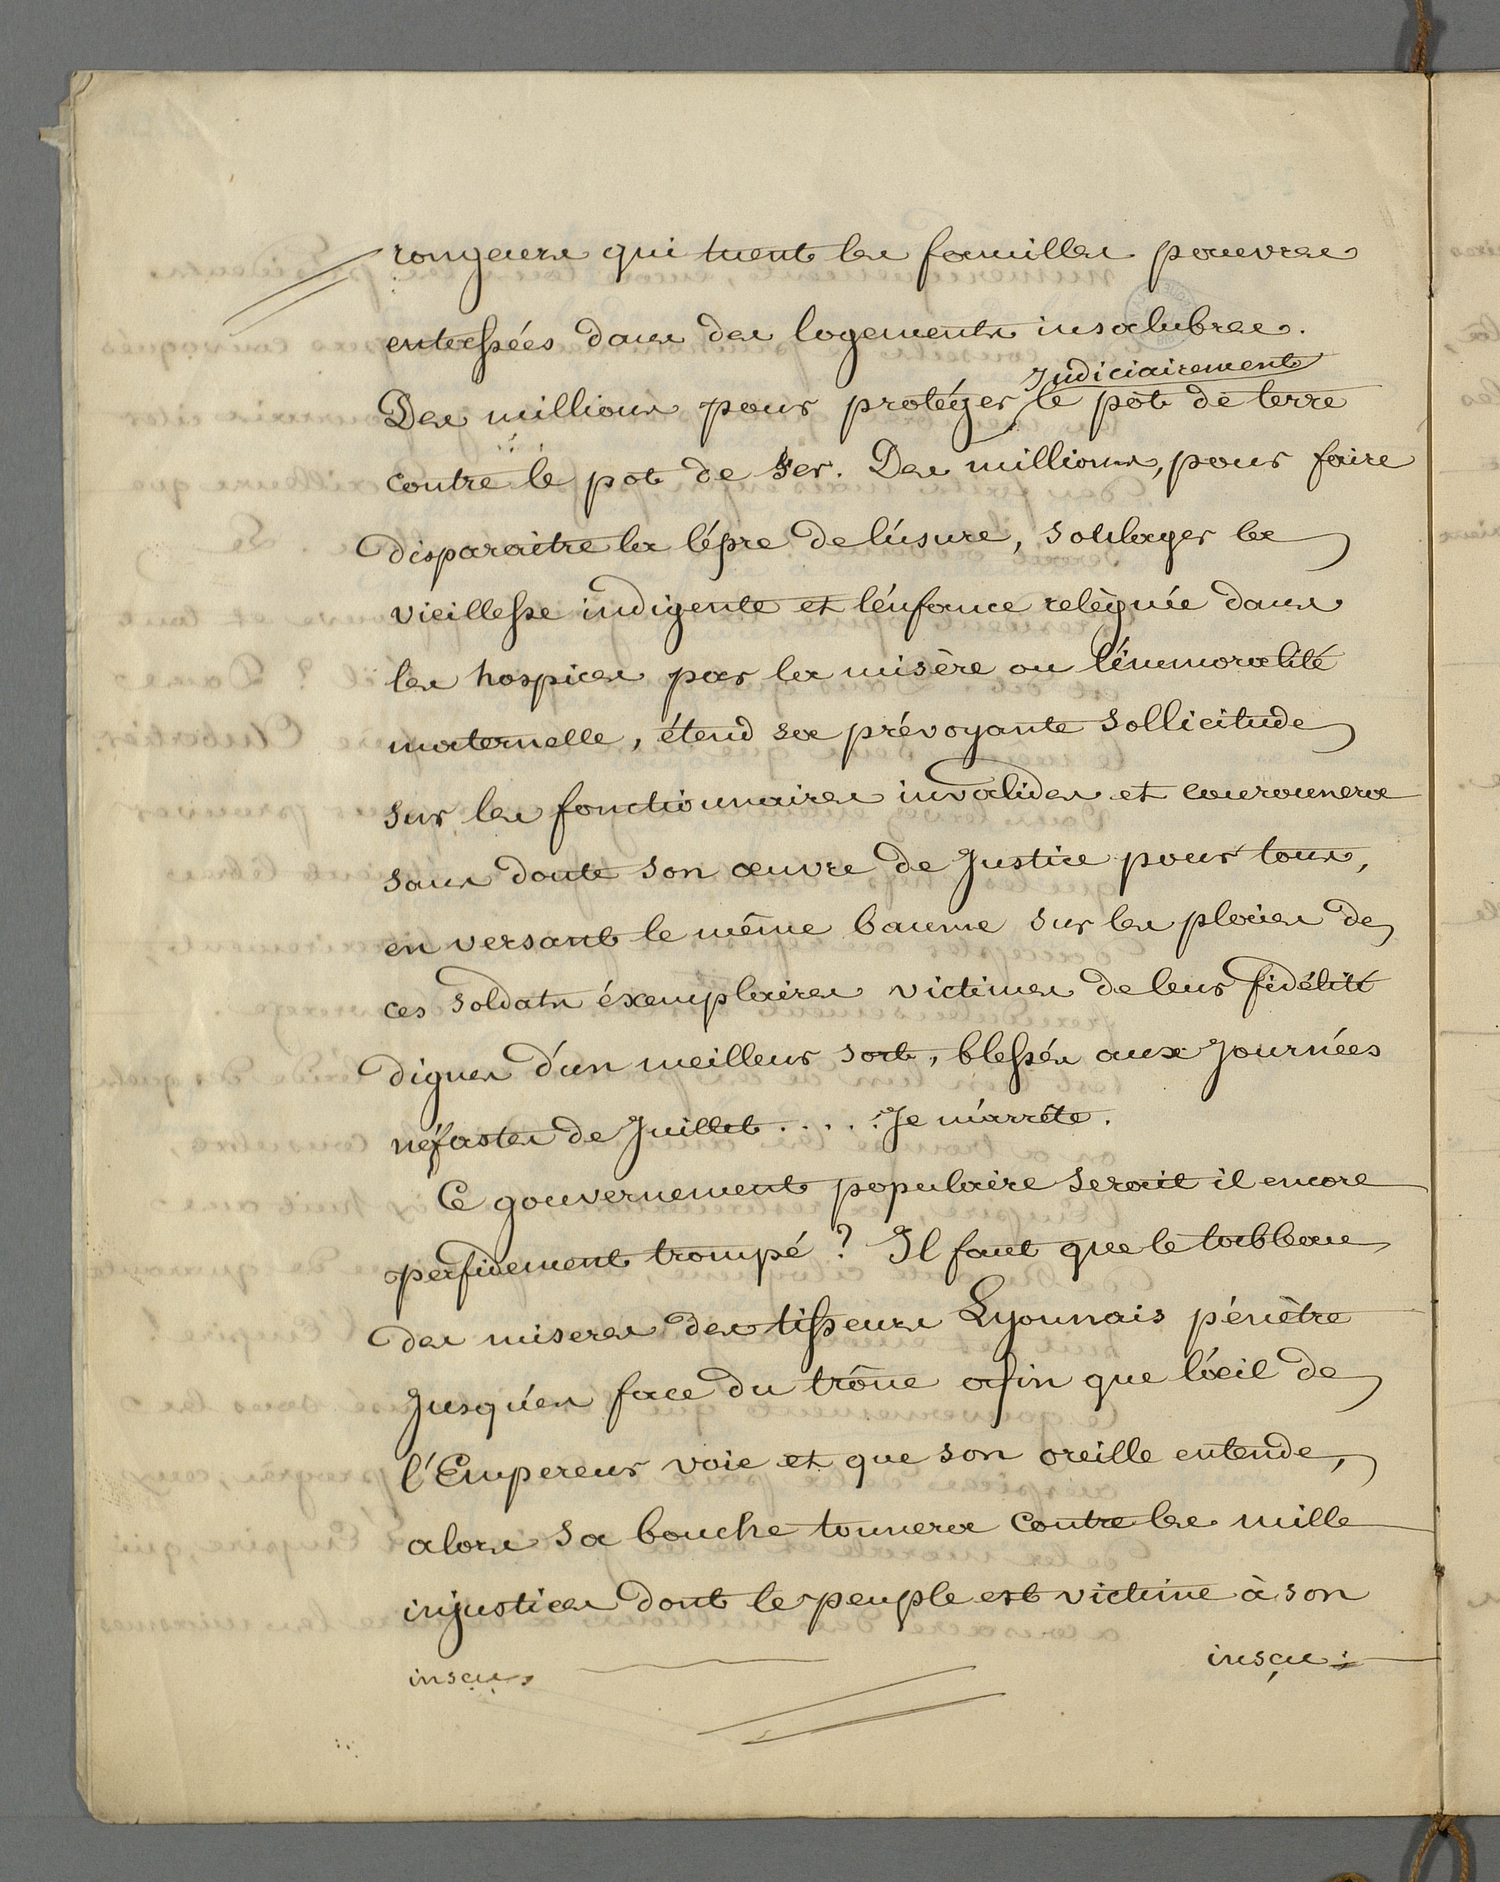 rongeurs qui tuent les familles pauvres
entassées dans des logements insalubres.
Judiciairement
Des millions pour protéger le pot de terre
contre le pot de fer. Des millions, pour faire
disparaitre la lépre de l'úsure, soulager la
vieillesse indigente et l'énfance relèguée dans
les hospices par la misère ou l'immoralité
maternelle, étend sa prévoyante sollicitude
sur les fonctionnaires invalides et couronnera
sans doute son œuvre de Justice pour tous,
en versant le même baume sur les plaies de
ces soldats éxemplaires victimes de leur fidélité
dignes d'un meilleur sort, blessés aux Journées
néfastes de Juillet..... Je m'arrête.
Ce gouvernement populaire serait il encore
perfidement trompé ? Il faut que le tableau
des miseres des tisseurs Lyonnais pénètre
Jusqu'en face du trône afin que l'œil de
l'Empereur voie et que son oreille entende,
alors sa bouche tonnera contre les mille
injustices dont le peuple est victime à son
insçu :
insçu.